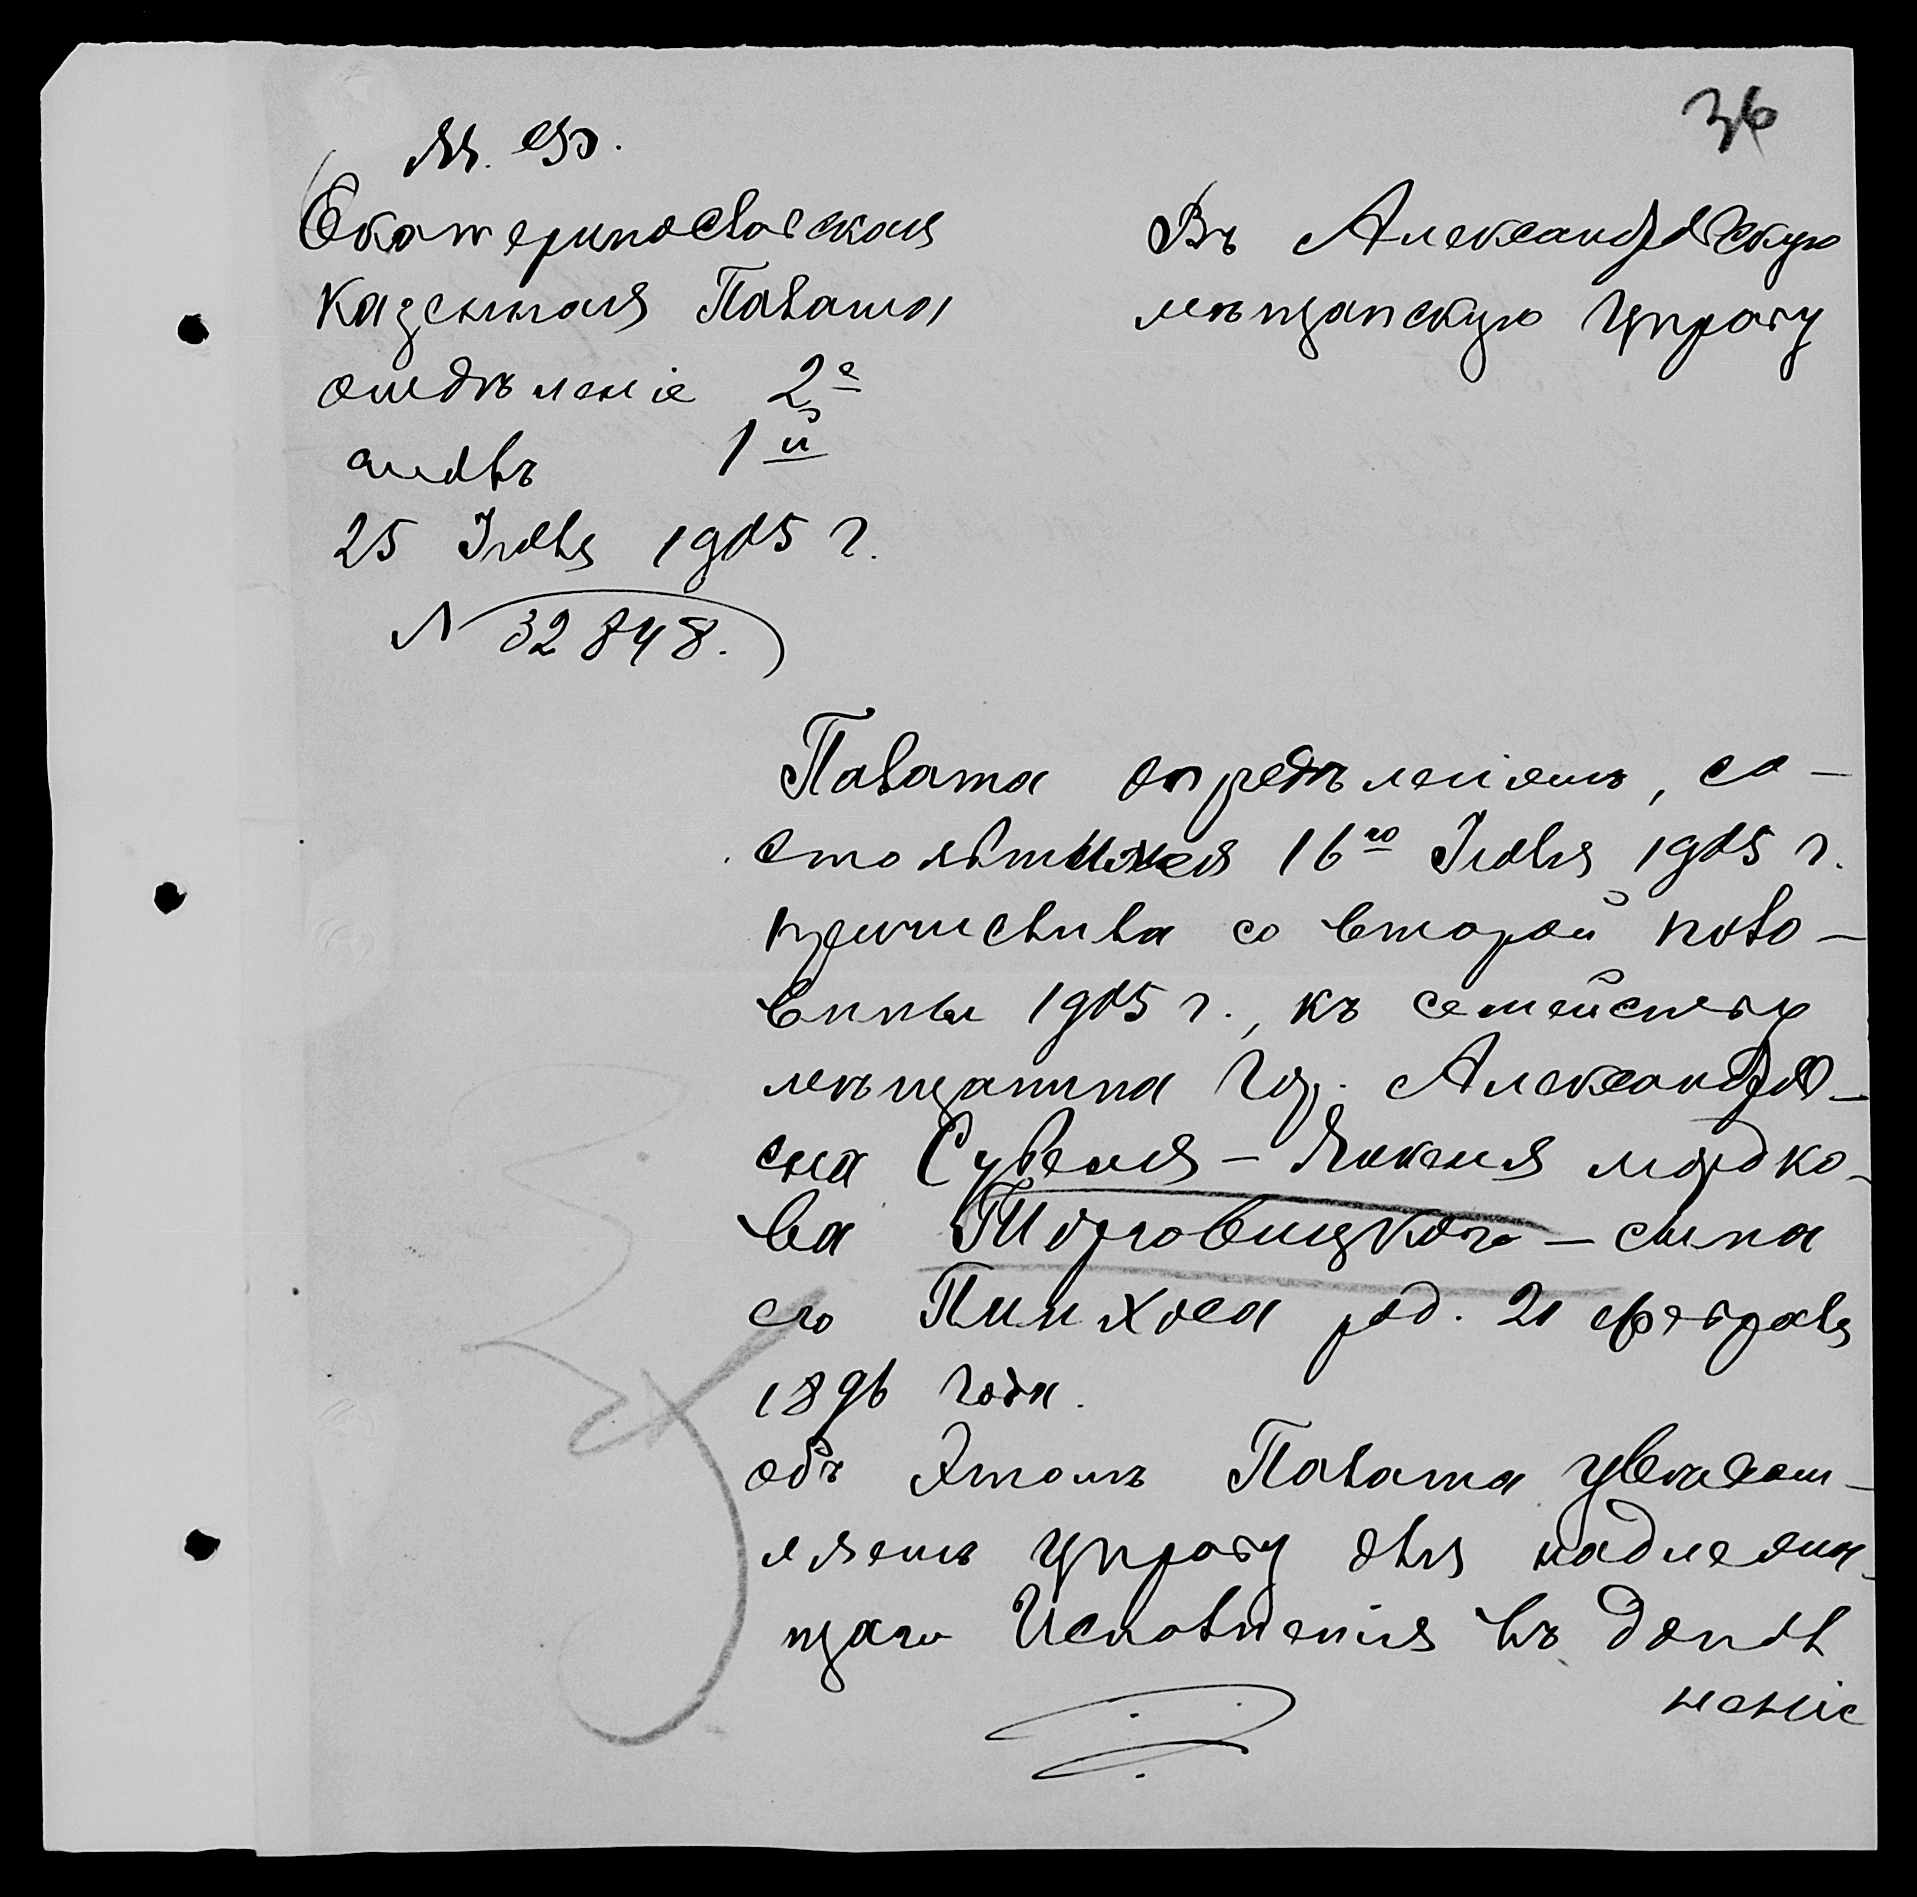 36
М. Ф.
Екатеринославская
Казенная Палата
отдѣленіе 2е
столъ 1й
25 Іюля 1905 г.
N 32848.
Въ Александровскую
мѣщанскую Управу
Палата опредѣленіемъ, со-
стоявшимся 16го Іюля 1905 г.
причислила со второй поло-
вины 1905 г., къ семейству
мѣщанина гор. Александров-
ска мордко-
ва Торговицкаго – сына
его Пинхоса род. 21 февраля
1896 года.
объ этомъ Палата увѣдом-
ляетъ Управу для надлежа-
щаго Исполненія въ допол
неніе